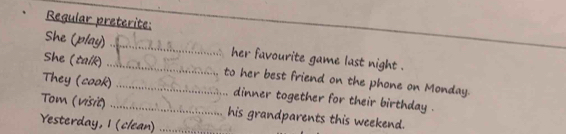 Regular preterite:
She (play) .................... her favourite game last night .
She (talk) .................... to her best friend on the phone on Monday.
They (cook) .................... dinner together for their birthday .
Tom (visit) .................... his grandparents this weekend.
Yesterday, I (clean) ....................